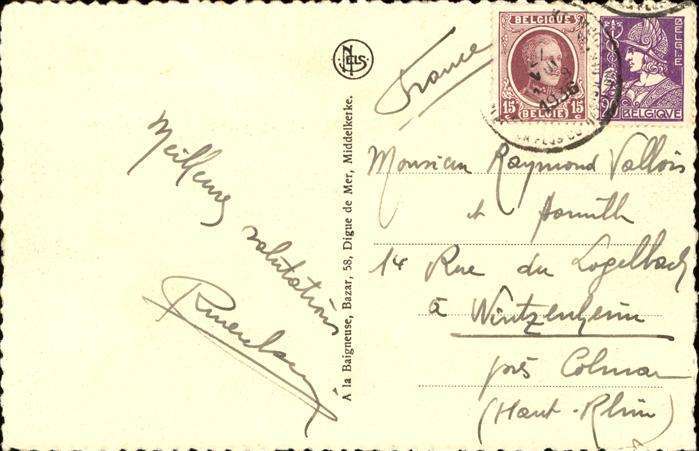 Meilleures
salutations
NELS
À la Baigneuse, Bazar, 58, Digue de Mer, Middelkerke.
France
BELGIQUE
15 15
BELGIË
1936
BELGIË
90 BELGIQUE
Monsieur Raymond Vallois
et famille
14 Rue du Logelbach
à Wintzenheim
près Colmar
(Haut-Rhin)